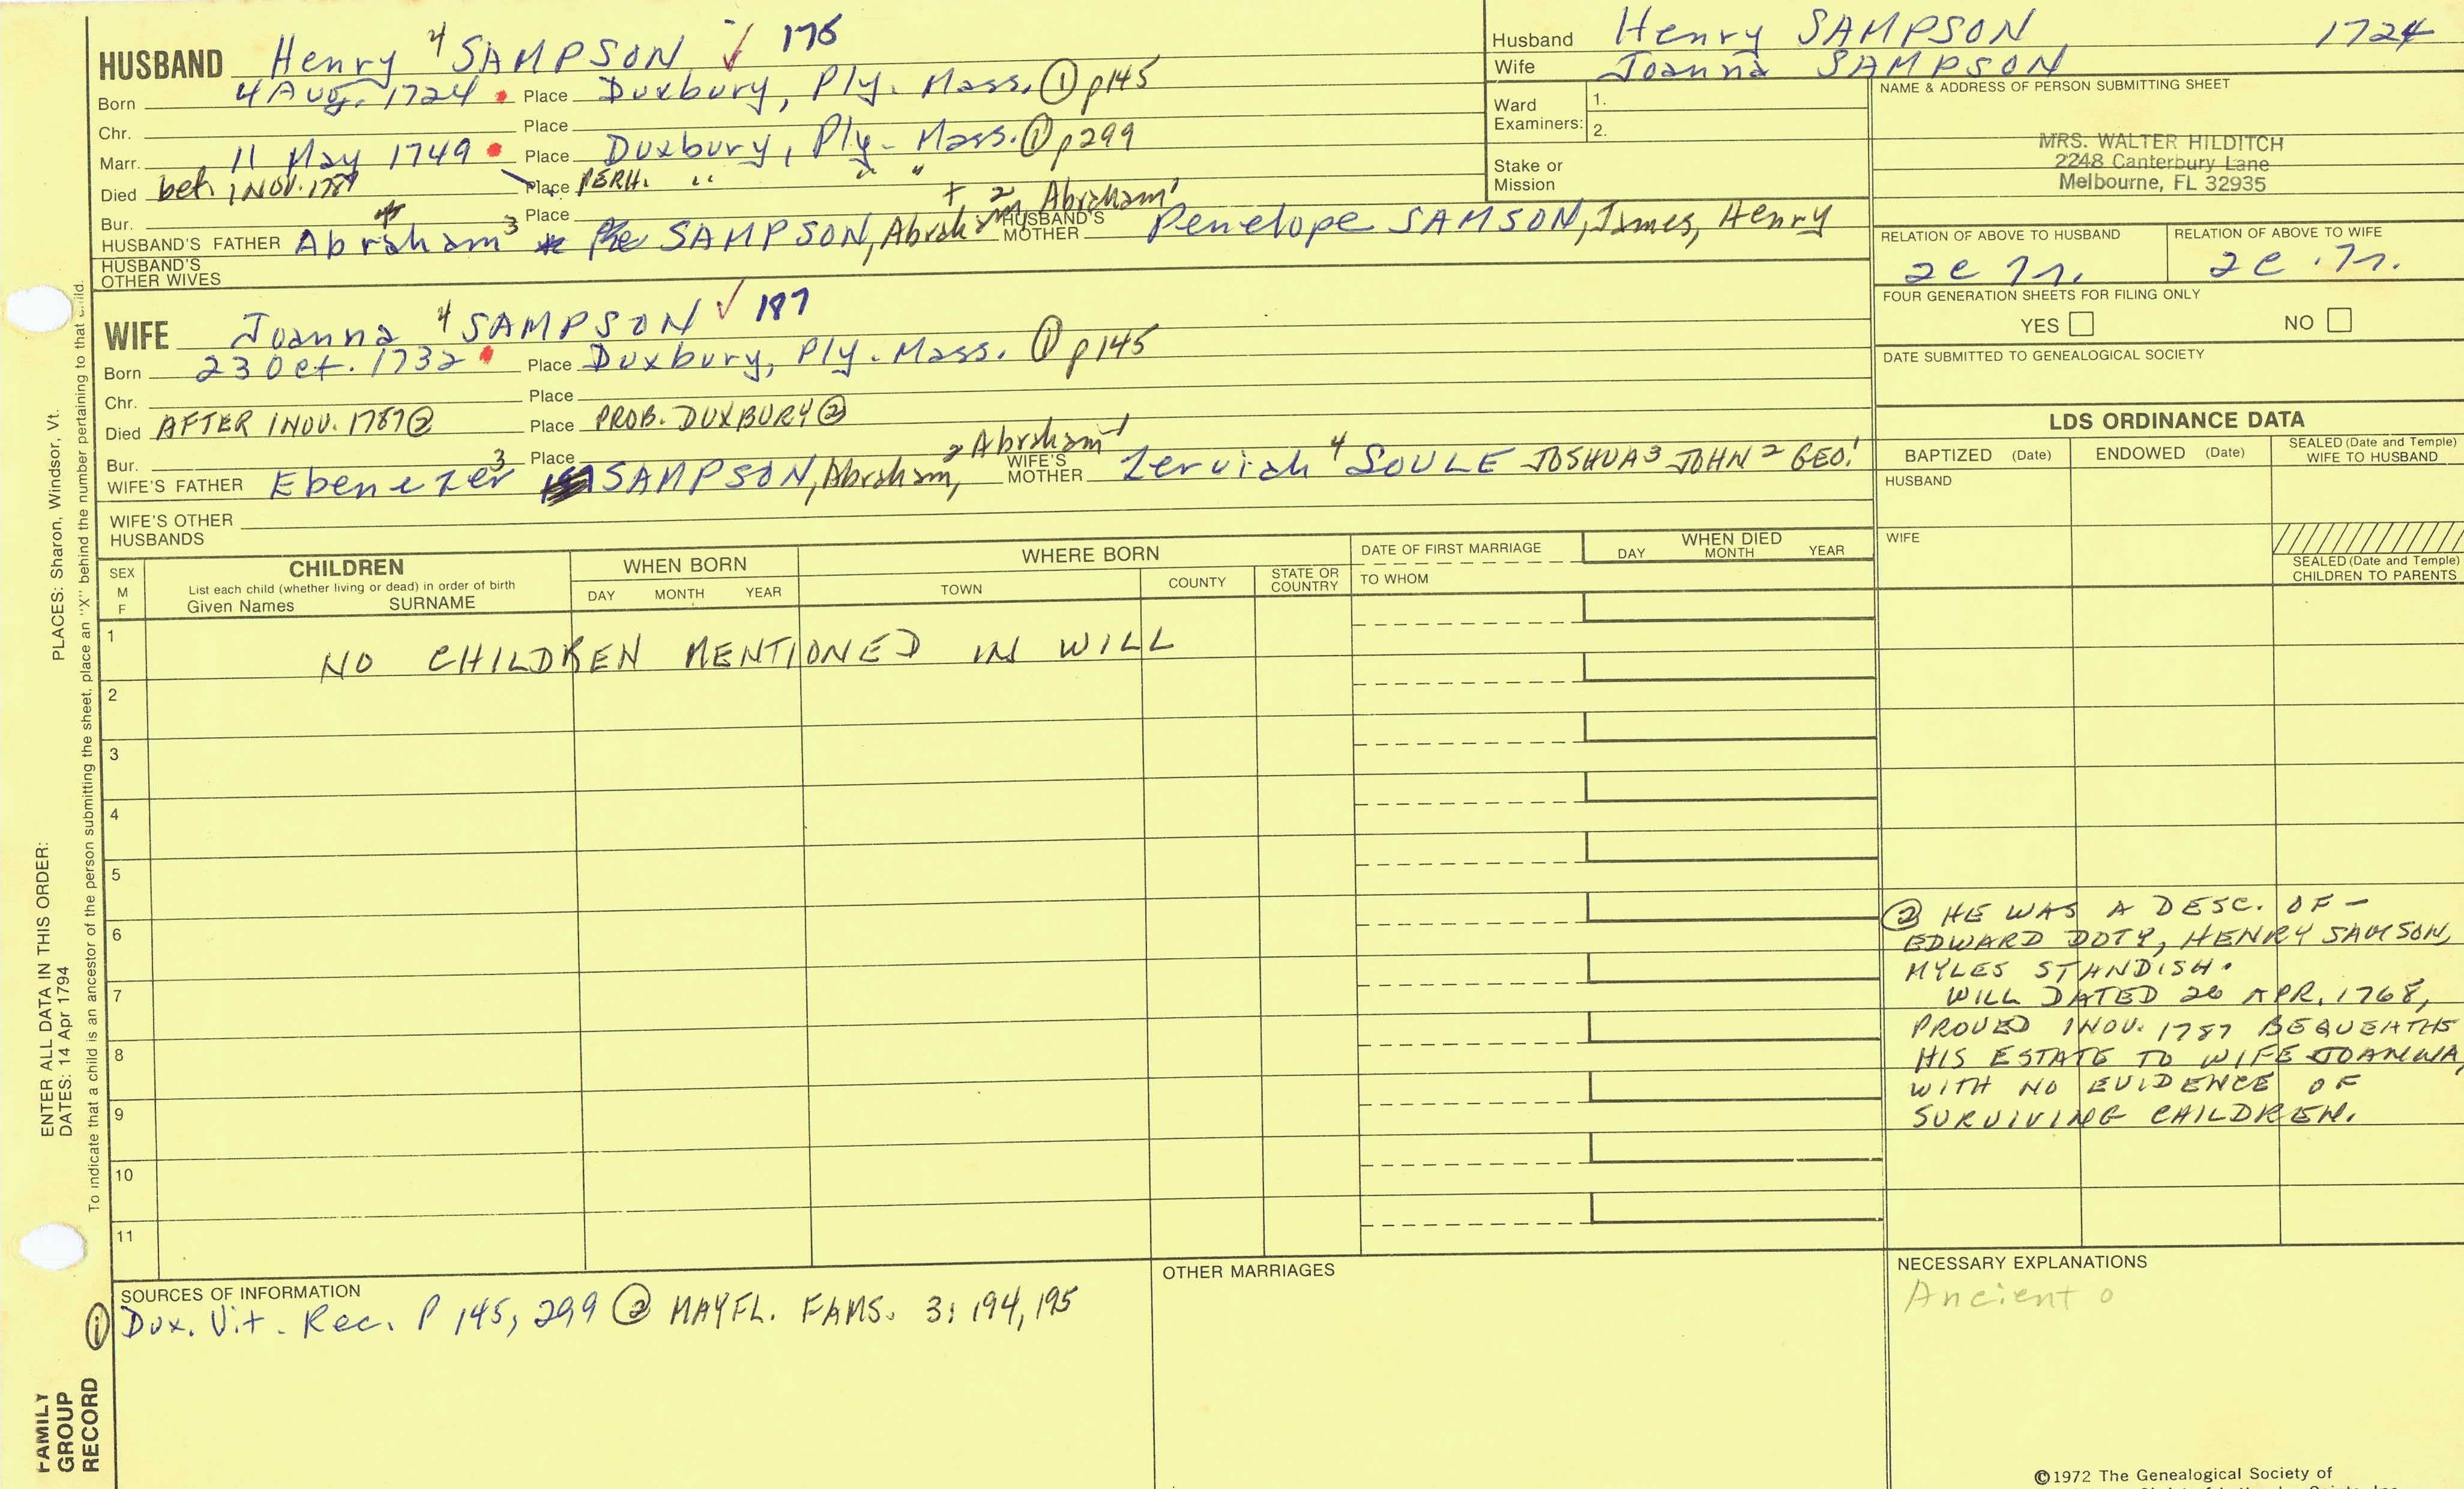 HUSBAND Henry 4 SAMPSON ✓ 176
Born 4 Aug. 1724 Place Duxbury, Ply. Mass. ① p145
Chr. Place
Marr. 11 May 1749 Place Duxbury, Ply. Mass. ① p299
Died bef. 1 NOV. 1787 Place PERH. " " "
Bur. Place
HUSBAND'S FATHER Abraham 3 SAMPSON, Abraham 2 Abraham 1 HUSBAND'S MOTHER Penelope SAMSON, James, Henry
HUSBAND'S OTHER WIVES
WIFE Joanna 4 SAMPSON ✓ 187
Born 23 Oct. 1732 Place Duxbury, Ply. Mass. ① p145
Chr. Place
Died AFTER 1 NOV. 1787 ② Place PROB. DUXBURY ②
Bur. Place
WIFE'S FATHER Ebenezer 3 SAMPSON, Abraham, 2 Abraham 1 WIFE'S MOTHER Zeruiah 4 SOULE JOSHUA 3 JOHN 2 GEO. 1
WIFE'S OTHER HUSBANDS
Husband Henry SAMPSON 1724
Wife Joanna SAMPSON
Ward Examiners: 1.
2.
Stake or Mission
NAME & ADDRESS OF PERSON SUBMITTING SHEET
MRS. WALTER HILDITCH
2248 Canterbury Lane
Melbourne, FL 32935
RELATION OF ABOVE TO HUSBAND RELATION OF ABOVE TO WIFE
FOUR GENERATION SHEETS FOR FILING ONLY
YES NO
DATE SUBMITTED TO GENEALOGICAL SOCIETY
LDS ORDINANCE DATA
BAPTIZED (Date) ENDOWED (Date) SEALED (Date and Temple) WIFE TO HUSBAND
HUSBAND
WIFE
SEALED (Date and Temple) CHILDREN TO PARENTS
SEX M F
CHILDREN
List each child (whether living or dead) in order of birth
Given Names SURNAME
WHEN BORN
DAY MONTH YEAR
WHERE BORN
TOWN COUNTY STATE OR COUNTRY
DATE OF FIRST MARRIAGE
TO WHOM
WHEN DIED
DAY MONTH YEAR
1 NO CHILDREN MENTIONED IN WILL
2
3
4
5
6
7
8
9
10
11
② HE WAS A DESC. OF -
EDWARD DOTY, HENRY SAMSON,
MYLES STANDISH.
WILL DATED 26 APR. 1768,
PROVED 1 NOV. 1787 BEQUEATHS
HIS ESTATE TO WIFE JOANNA,
WITH NO EVIDENCE OF
SURVIVING CHILDREN.
SOURCES OF INFORMATION
① Dux. Vit. Rec. P 145, 299 ② MAYFL. FAMS. 3: 194, 195
OTHER MARRIAGES
NECESSARY EXPLANATIONS
Ancient
©1972 The Genealogical Society of
ENTER ALL DATA IN THIS ORDER:
DATES: 14 Apr 1794 PLACES: Sharon, Windsor, Vt.
To indicate that a child is an ancestor of the person submitting the sheet, place an "X" behind the number pertaining to that child.
FAMILY GROUP RECORD